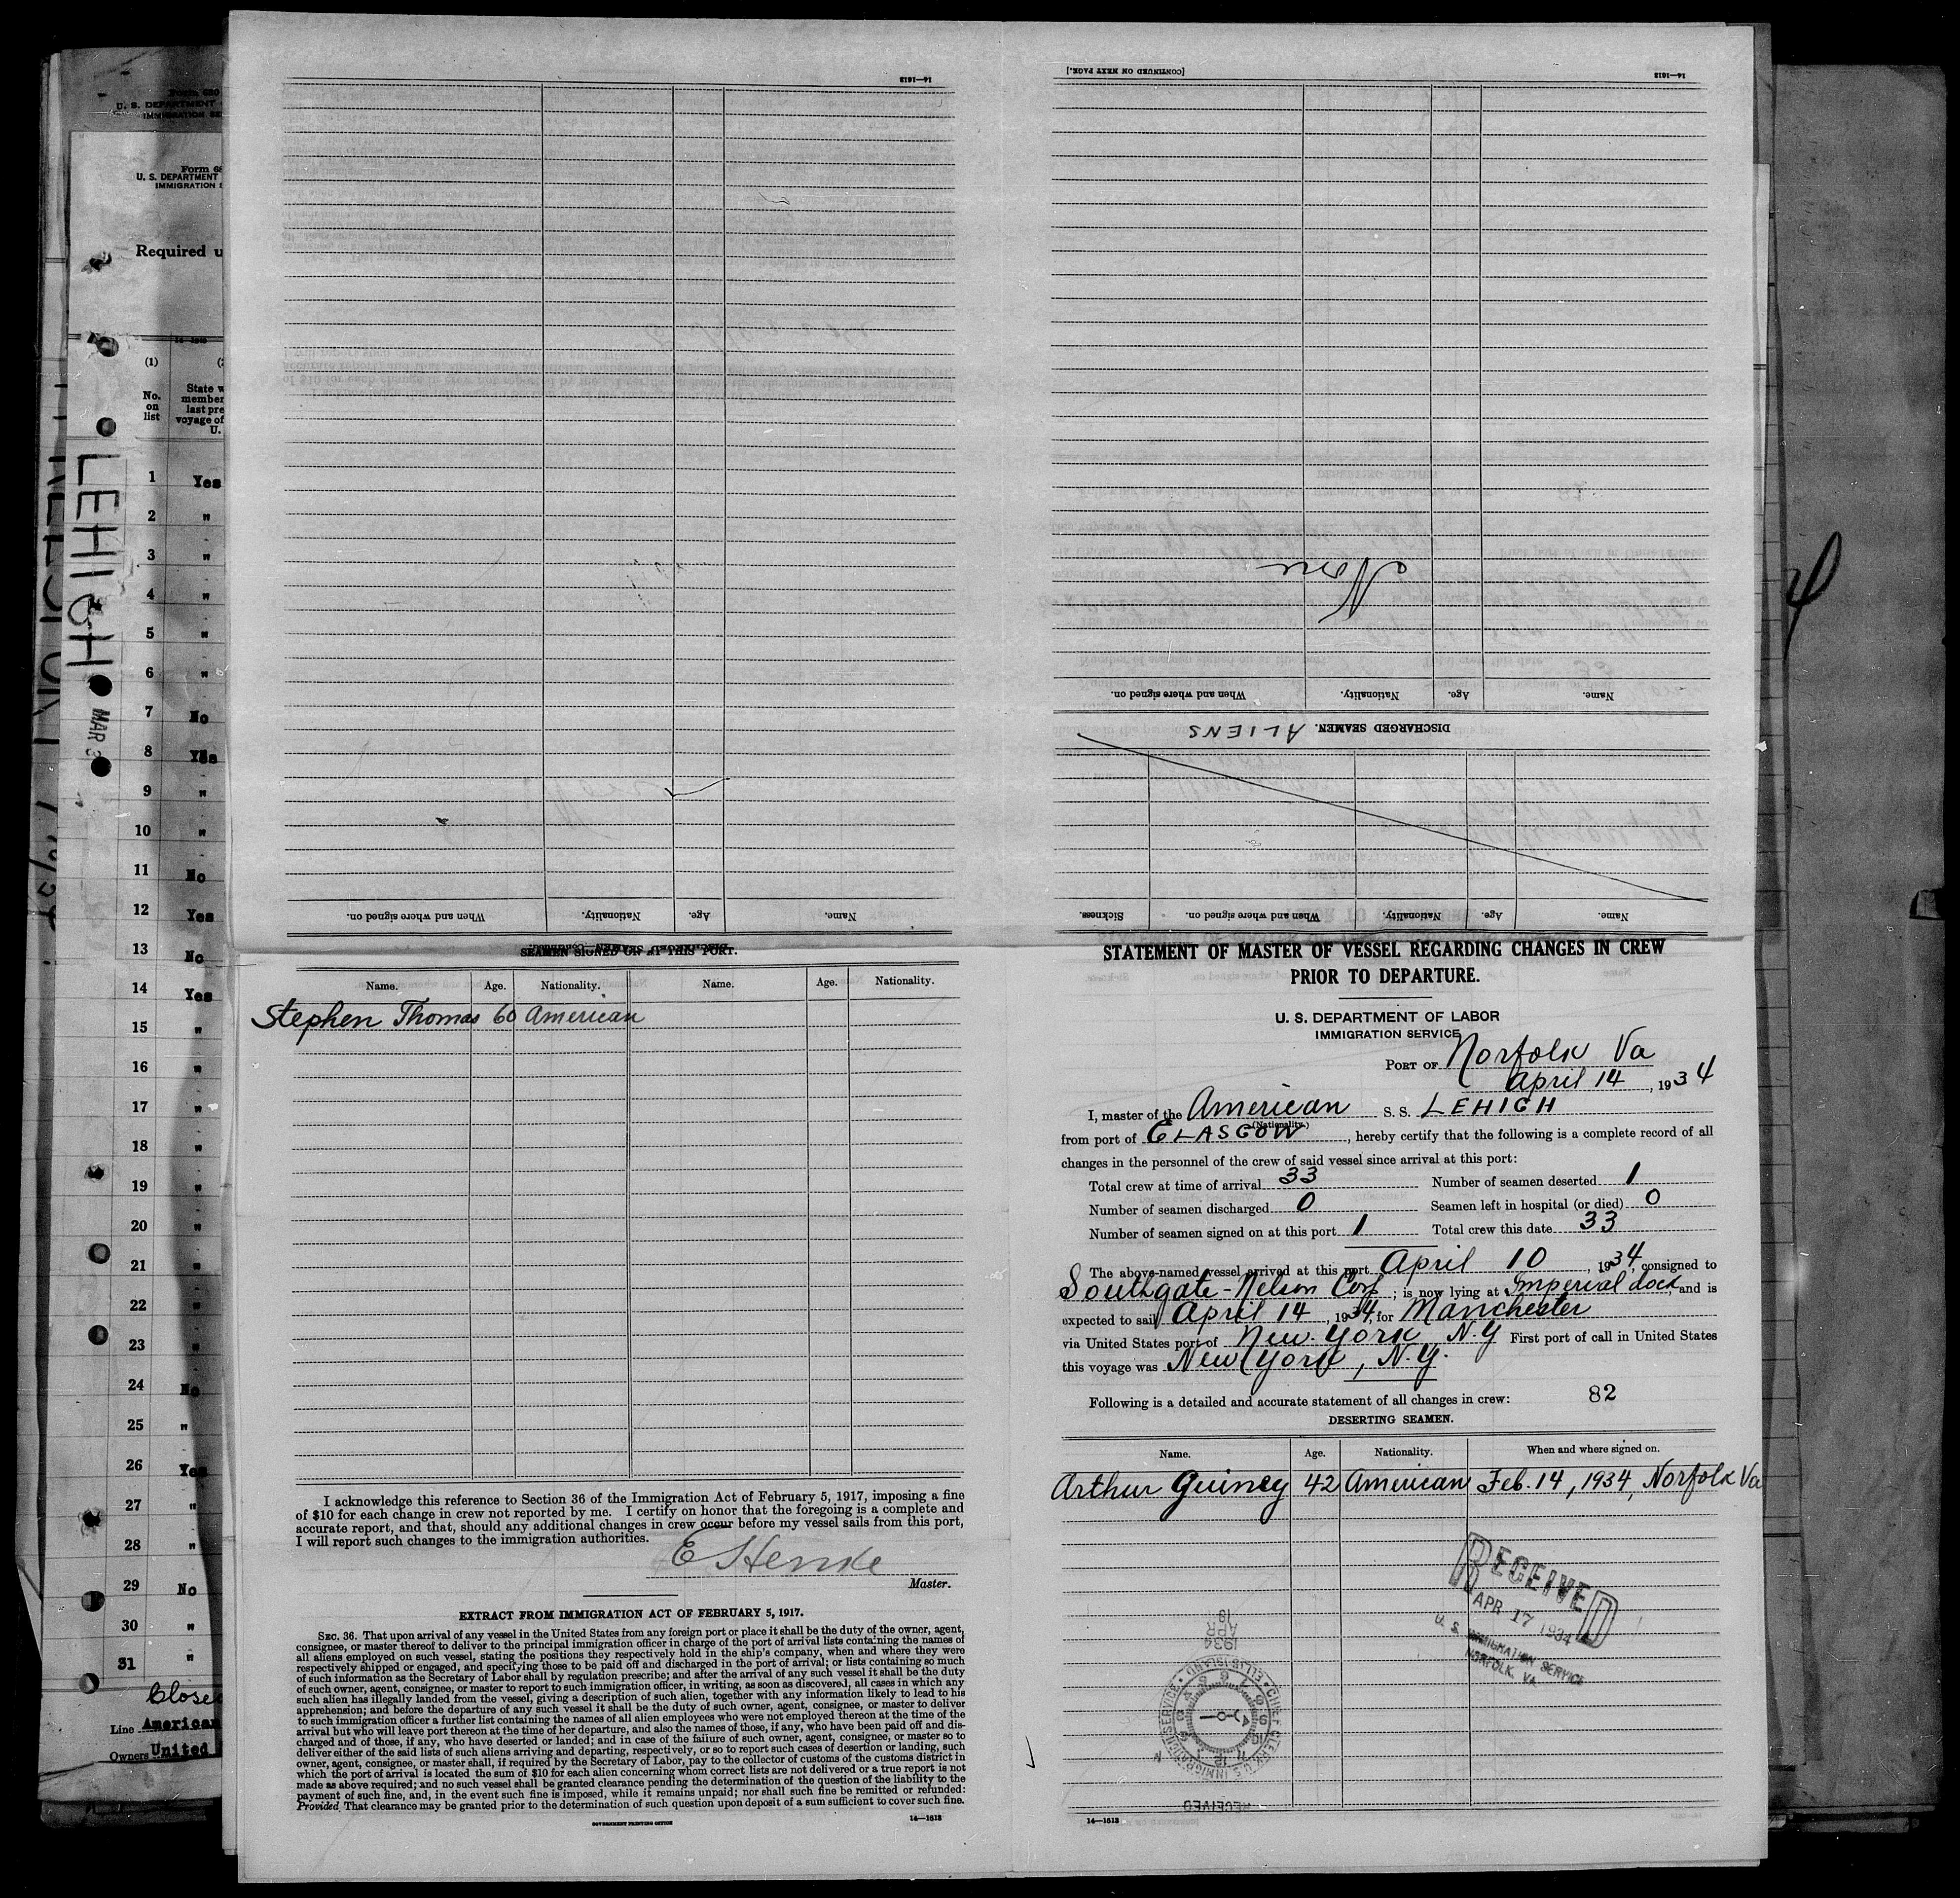 Form 680
U. S. DEPARTMENT
IMMIGRATION SE
Form 68
U. S. DEPARTMENT
IMMIGRATION S
Required u
(1)
No.
on
list
State w
member
last pre
voyage of
U.
1 Yes
2 "
3 "
4 "
5 "
6 "
7 No
8 Yes
9 "
10 "
11 No
12 Yes
13 No
14 Yes
15 "
16 "
17 "
18 "
19 "
20 "
21 "
22 "
23 "
24 No
25 "
26 Yes
27 "
28 "
29 No
30 "
31 "
Close
Line American
Owners United
LEHIGH
MAR 3
14—1613
Name. Age. Nationality. When and where signed on.
DISCHARGED SEAMEN—Continued.
[CONTINUED ON NEXT PAGE.]
14—1613
None
Name. Age. Nationality. When and where signed on.
DISCHARGED SEAMEN. ALIENS
Name. Age. Nationality. When and where signed on. Sickness.
SEAMEN SIGNED ON AT THIS PORT.
Name. Age. Nationality. Name. Age. Nationality.
Stephen Thomas 60 American
I acknowledge this reference to Section 36 of the Immigration Act of February 5, 1917, imposing a fine
of $10 for each change in crew not reported by me. I certify on honor that the foregoing is a complete and
accurate report, and that, should any additional changes in crew occur before my vessel sails from this port,
I will report such changes to the immigration authorities.
Master.
EXTRACT FROM IMMIGRATION ACT OF FEBRUARY 5, 1917.
SEC. 36. That upon arrival of any vessel in the United States from any foreign port or place it shall be the duty of the owner, agent,
consignee, or master thereof to deliver to the principal immigration officer in charge of the port of arrival lists containing the names of
all aliens employed on such vessel, stating the positions they respectively hold in the ship's company, when and where they were
respectively shipped or engaged, and specifying those to be paid off and discharged in the port of arrival; or lists containing so much
of such information as the Secretary of Labor shall by regulation prescribe; and after the arrival of any such vessel it shall be the duty
of such owner, agent, consignee, or master to report to such immigration officer, in writing, as soon as discovered, all cases in which any
such alien has illegally landed from the vessel, giving a description of such alien, together with any information likely to lead to his
apprehension; and before the departure of any such vessel it shall be the duty of such owner, agent, consignee, or master to deliver
to such immigration officer a further list containing the names of all alien employees who were not employed thereon at the time of the
arrival but who will leave port thereon at the time of her departure, and also the names of those, if any, who have been paid off and dis-
charged and of those, if any, who have deserted or landed; and in case of the failure of such owner, agent, consignee, or master so to
deliver either of the said lists of such aliens arriving and departing, respectively, or so to report such cases of desertion or landing, such
owner, agent, consignee, or master shall, if required by the Secretary of Labor, pay to the collector of customs of the customs district in
which the port of arrival is located the sum of $10 for each alien concerning whom correct lists are not delivered or a true report is not
made as above required; and no such vessel shall be granted clearance pending the determination of the question of the liability to the
payment of such fine, and, in the event such fine is imposed, while it remains unpaid; nor shall such fine be remitted or refunded:
Provided That clearance may be granted prior to the determination of such question upon deposit of a sum sufficient to cover such fine.
GOVERNMENT PRINTING OFFICE 14—1613
STATEMENT OF MASTER OF VESSEL REGARDING CHANGES IN CREW
PRIOR TO DEPARTURE.
U. S. DEPARTMENT OF LABOR
IMMIGRATION SERVICE
PORT OF Norfolk Va
April 14, 1934
I, master of the American S. S. LEHIGH
(Nationality.)
from port of GLASGOW, hereby certify that the following is a complete record of all
changes in the personnel of the crew of said vessel since arrival at this port:
Total crew at time of arrival 33 Number of seamen deserted 1
Number of seamen discharged 0 Seamen left in hospital (or died) 0
Number of seamen signed on at this port 1 Total crew this date 33
The above-named vessel arrived at this port April 10, 1934, consigned to
Southgate-Nelson Corp; is now lying at Imperial dock, and is
expected to sail April 14, 1934, for Manchester
via United States port of New York N.Y First port of call in United States
this voyage was New York, N.Y.
Following is a detailed and accurate statement of all changes in crew: 82
DESERTING SEAMEN.
Name. Age. Nationality. When and where signed on.
Arthur Quincy 42 American Feb. 14, 1934, Norfolk Va
RECEIVED
APR 17 1934
U. S. IMMIGRATION SERVICE
NORFOLK, VA.
1934
APR
18
RECEIVED
14—1613